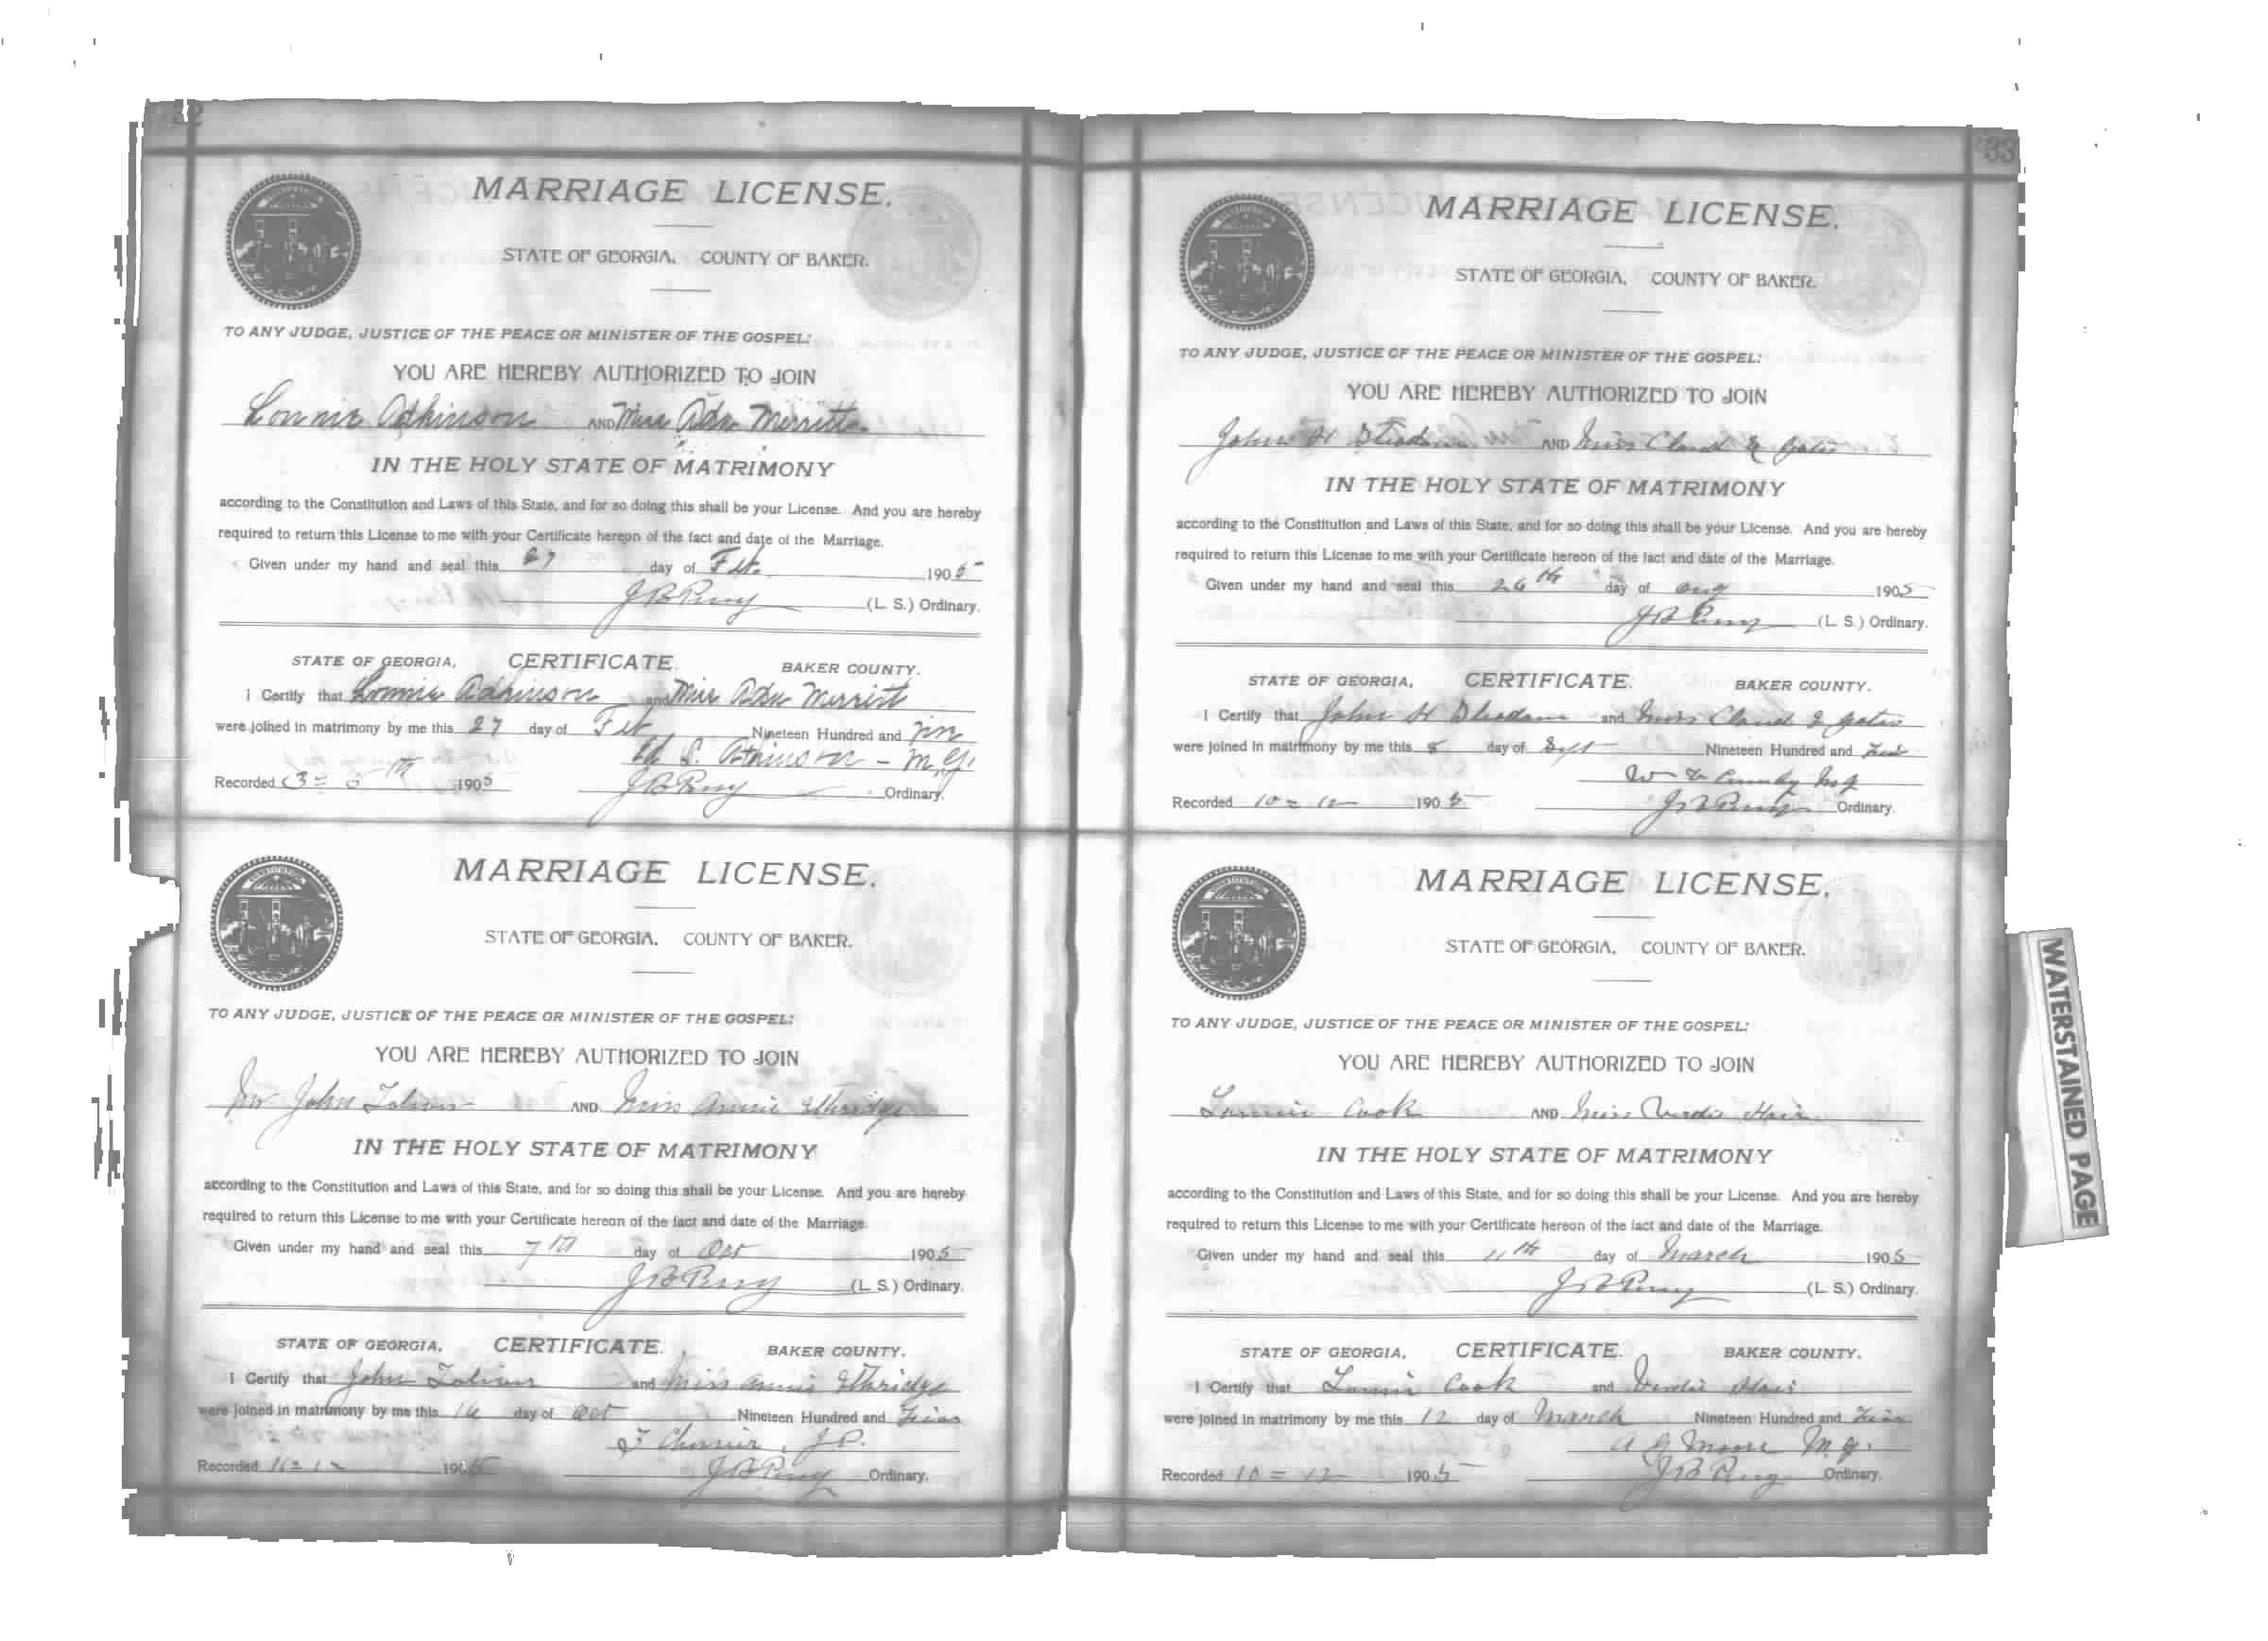 32
MARRIAGE LICENSE.
STATE OF GEORGIA, COUNTY OF BAKER.
TO ANY JUDGE, JUSTICE OF THE PEACE OR MINISTER OF THE GOSPEL:
YOU ARE HEREBY AUTHORIZED TO JOIN
Lonnie Adkinson AND Miss Ada Merritt
IN THE HOLY STATE OF MATRIMONY
according to the Constitution and Laws of this State, and for so doing this shall be your License. And you are hereby
required to return this License to me with your Certificate hereon of the fact and date of the Marriage.
Given under my hand and seal this 27 day of Feb. 1905
J B Perry (L. S.) Ordinary.
STATE OF GEORGIA, CERTIFICATE. BAKER COUNTY.
I Certify that Lonnie Adkinson and Miss Ada Merritt
were joined in matrimony by me this 27 day of Feb Nineteen Hundred and
S. Atkinson - M.G.
Recorded 3 = 5th 1905 J B Perry Ordinary.
MARRIAGE LICENSE.
STATE OF GEORGIA, COUNTY OF BAKER.
TO ANY JUDGE, JUSTICE OF THE PEACE OR MINISTER OF THE GOSPEL:
YOU ARE HEREBY AUTHORIZED TO JOIN
Mr John AND Miss Annie Ethridge
IN THE HOLY STATE OF MATRIMONY
according to the Constitution and Laws of this State, and for so doing this shall be your License. And you are hereby
required to return this License to me with your Certificate hereon of the fact and date of the Marriage.
Given under my hand and seal this 7th day of Oct 1905
J B Perry (L. S.) Ordinary.
STATE OF GEORGIA, CERTIFICATE. BAKER COUNTY.
I Certify that John and Miss Annie Ethridge
were joined in matrimony by me this day of Oct Nineteen Hundred and Five
J.P.
Recorded 190 J B Perry Ordinary.
33
MARRIAGE LICENSE.
STATE OF GEORGIA, COUNTY OF BAKER.
TO ANY JUDGE, JUSTICE OF THE PEACE OR MINISTER OF THE GOSPEL:
YOU ARE HEREBY AUTHORIZED TO JOIN
John H AND Miss Claud
IN THE HOLY STATE OF MATRIMONY
according to the Constitution and Laws of this State, and for so doing this shall be your License. And you are hereby
required to return this License to me with your Certificate hereon of the fact and date of the Marriage.
Given under my hand and seal this 26th day of Aug 1905
J B Perry (L. S.) Ordinary.
STATE OF GEORGIA, CERTIFICATE. BAKER COUNTY.
I Certify that John H and Miss Claud
were joined in matrimony by me this day of Sept Nineteen Hundred and Five
Recorded 10 = 12 1905 J B Perry Ordinary.
MARRIAGE LICENSE.
STATE OF GEORGIA, COUNTY OF BAKER.
TO ANY JUDGE, JUSTICE OF THE PEACE OR MINISTER OF THE GOSPEL:
YOU ARE HEREBY AUTHORIZED TO JOIN
Cook AND Miss
IN THE HOLY STATE OF MATRIMONY
according to the Constitution and Laws of this State, and for so doing this shall be your License. And you are hereby
required to return this License to me with your Certificate hereon of the fact and date of the Marriage.
Given under my hand and seal this 11th day of March 1905
J B Perry (L. S.) Ordinary.
STATE OF GEORGIA, CERTIFICATE. BAKER COUNTY.
I Certify that Cook and
were joined in matrimony by me this 12 day of March Nineteen Hundred and Five
A J Moore M.G.
Recorded 10 = 12 1905 J B Perry Ordinary.
WATERSTAINED PAGE